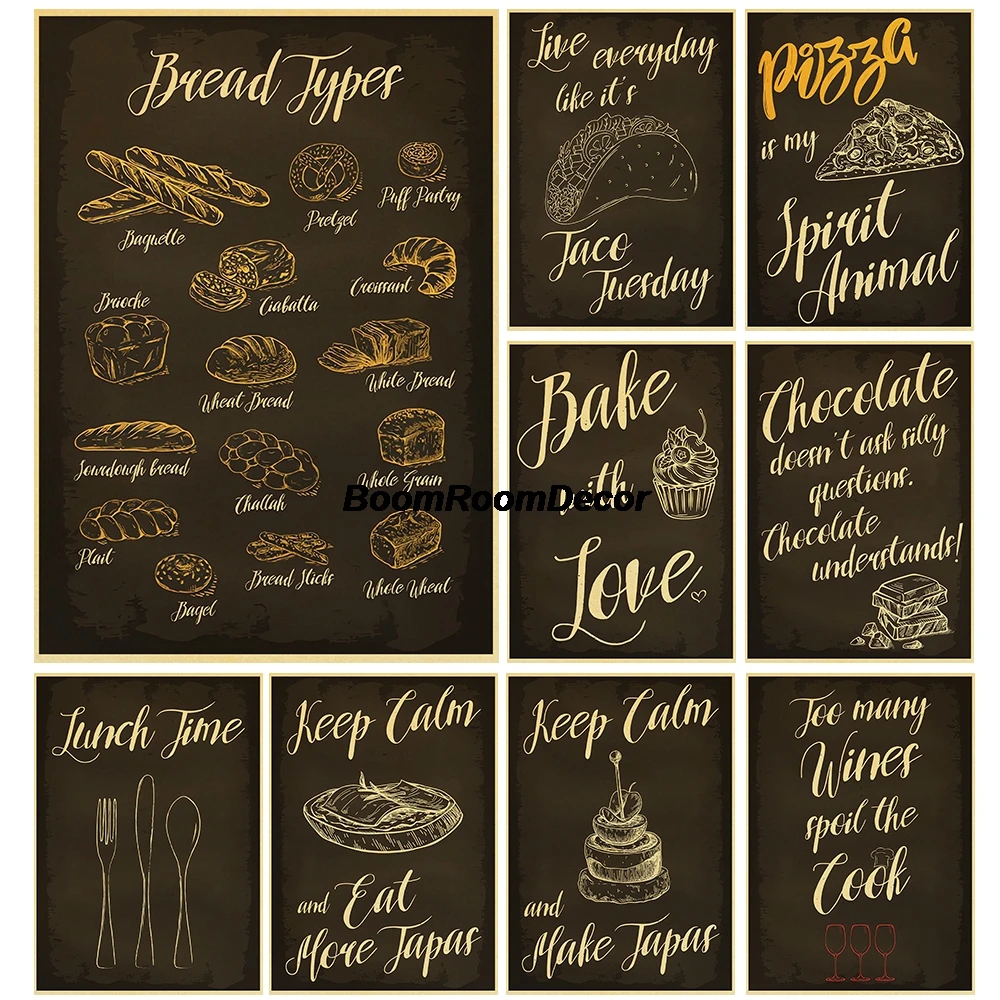 Bread Types
Baguette
Pretzel
Puff Pastry
Brioche
Ciabatta
Croissant
Wheat Bread
White Bread
Sourdough bread
Challah
Whole Grain
Plait
Bread Sticks
Whole Wheat
Bagel
Live everyday
like it's
Taco
Tuesday
Pizza
is my
Spirit
Animal
Bake
with
Love
Chocolate
doesn't ask silly
questions.
Chocolate
understands!
BoomRoomDecor
Lunch Time
Keep Calm
and Eat
More Tapas
Keep Calm
and
Make Tapas
Too many
Wines
spoil the
Cook